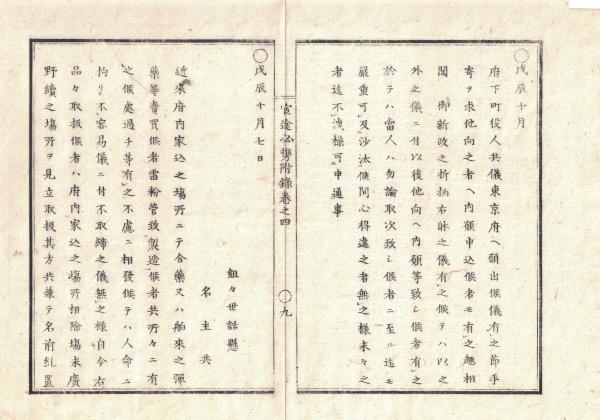 〇戊辰十月
府下町役人共儀東京府ヘ願出候儀有之節手
寄ヲ求他向之者ヘ内願申込候者モ有之趣相
聞 御新政之折柄右躰之儀有之候テハ以之
外之儀ニ付以後他向ヘ内願等致シ候者有之
於テハ當人ハ勿論取次致シ候者ニ至ル迄モ
嚴重可及沙汰候間心得違之者無之樣末々之
者迄不洩樣可申通事
官途必勢附錄卷之四
〇九
〇戊辰十月七日
組々世話懸
名主共
近來府内家込之塲所ニテ合藥又ハ舶來之彈
藥等賣買候者雷粉管致製造候者共所々ニ有
之候處過チ等有之不慮ニ相發候テハ人命ニ
拘リ不容易儀ニ付不取締之儀無之樣自今右
品々取扱候者ハ府内家込之塲所相除塲末廣
野續之塲所ヲ見立取扱其方共兼テ名前糺置